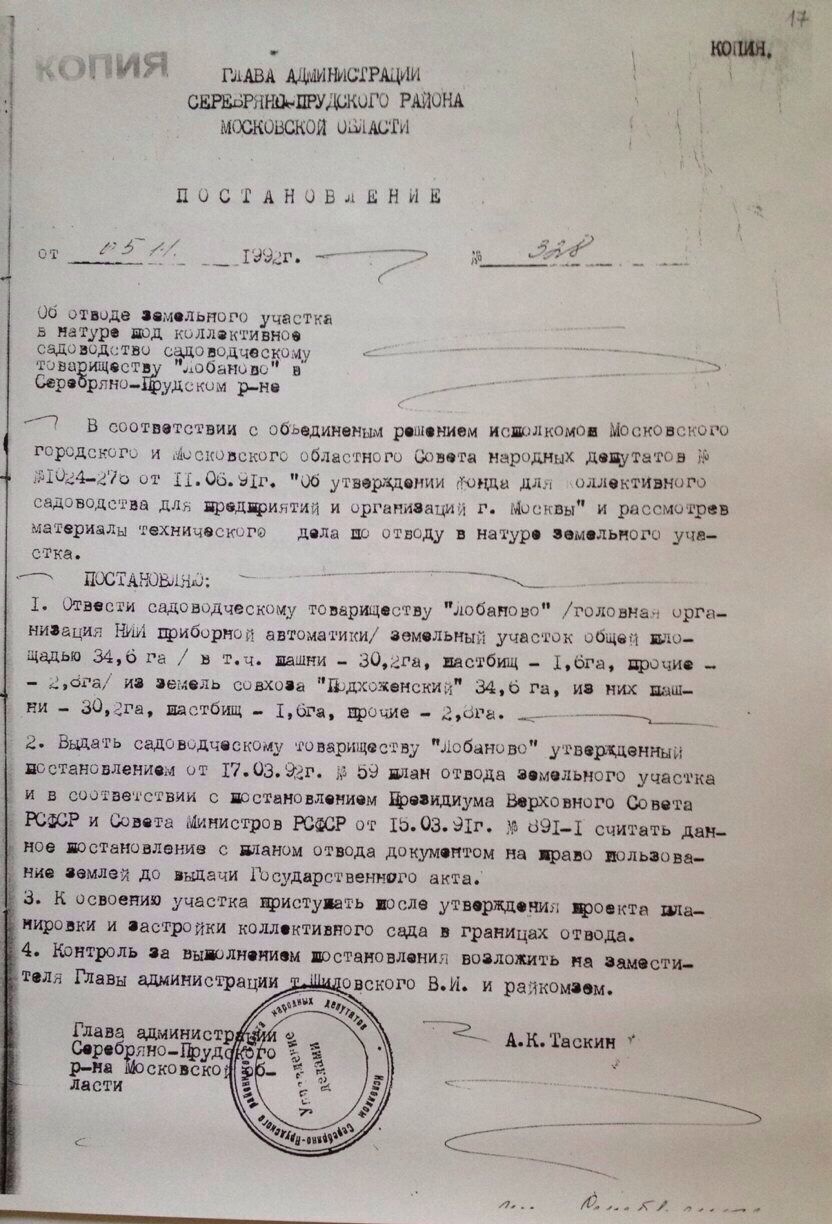 17
КОПИЯ
КОПИЯ.
ГЛАВА АДМИНИСТРАЦИИ
СЕРЕБРЯНО-ПРУДСКОГО РАЙОНА
МОСКОВСКОЙ ОБЛАСТИ
ПОСТАНОВЛЕНИЕ
от 05 11. 1992г. № 328
Об отводе земельного участка
в натуре под коллективное
садоводство садоводческому
товариществу "Лобаново" в
Серебряно-Прудском р-не
В соответствии с объединеным решением исполкомов Московского
городского и Московского областного Совета народных депутатов №
№1024-276 от 11.06.91г. "Об утверждении фонда для коллективного
садоводства для предприятий и организаций г. Москвы" и рассмотрев
материалы технического дела по отводу в натуре земельного уча-
стка.
ПОСТАНОВЛЯЮ:
1. Отвести садоводческому товариществу "Лобаново" /головная орга-
низация НИИ приборной автоматики/ земельный участок общей пло-
щадью 34,6 га / в т.ч. пашни - 30,2га, пастбищ - 1,6га, прочие -
- 2,8га/ из земель совхоза "Подхоженский" 34,6 га, из них паш-
ни - 30,2га, пастбищ - 1,6га, прочие - 2,8га.
2. Выдать садоводческому товариществу "Лобаново" утвержденный
постановлением от 17.03.92г. № 59 план отвода земельного участка
и в соответствии с постановлением Президиума Верховного Совета
РСФСР и Совета Министров РСФСР от 15.03.91г. № 891-1 считать дан-
ное постановление с планом отвода документом на право пользова-
ние землей до выдачи Государственного акта.
3. К освоению участка приступать после утверждения проекта пла-
нировки и застройки коллективного сада в границах отвода.
4. Контроль за выполнением постановления возложить на замести-
теля Главы администрации т.Шиловского В.И. и райкомзем.
Глава администрации
Серебряно-Прудского
р-на Московской об-
ласти
А.К.Таскин
Исполком Серебряно-Прудского районного Совета народных депутатов
Управление
делами